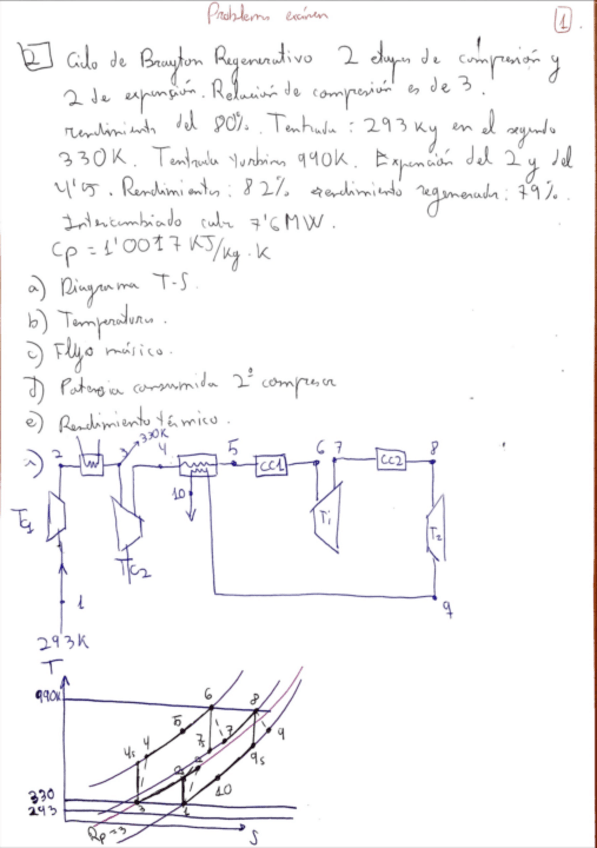 Problemas exámen
1
2 Ciclo de Brayton Regenerativo 2 etapas de compresión y
2 de expansión. Relación de compresión es de 3.
rendimiento del 80%. Tentrada: 293 K y en el segundo
330K. Tentrada turbinas 990K. Expansión del 2 y del
4'5. Rendimientos: 82% rendimiento regenerador: 79%.
Intercambiado 7'6 MW.
Cp = 1'0017 KJ/kg·K
a) Diagrama T-S.
b) Temperaturas.
c) Flujo másico.
d) Potencia consumida 2º compresor
e) Rendimiento térmico.
a) 2 3 330K 4 5 CC1 6 7 CC2 8
10
TC1 TC2 T1 T2
1 9
293K
T
990K 6 8
5 7s 7 9
4s 4 9s
2s 2 10
330 3 1
293
Rp=3 S